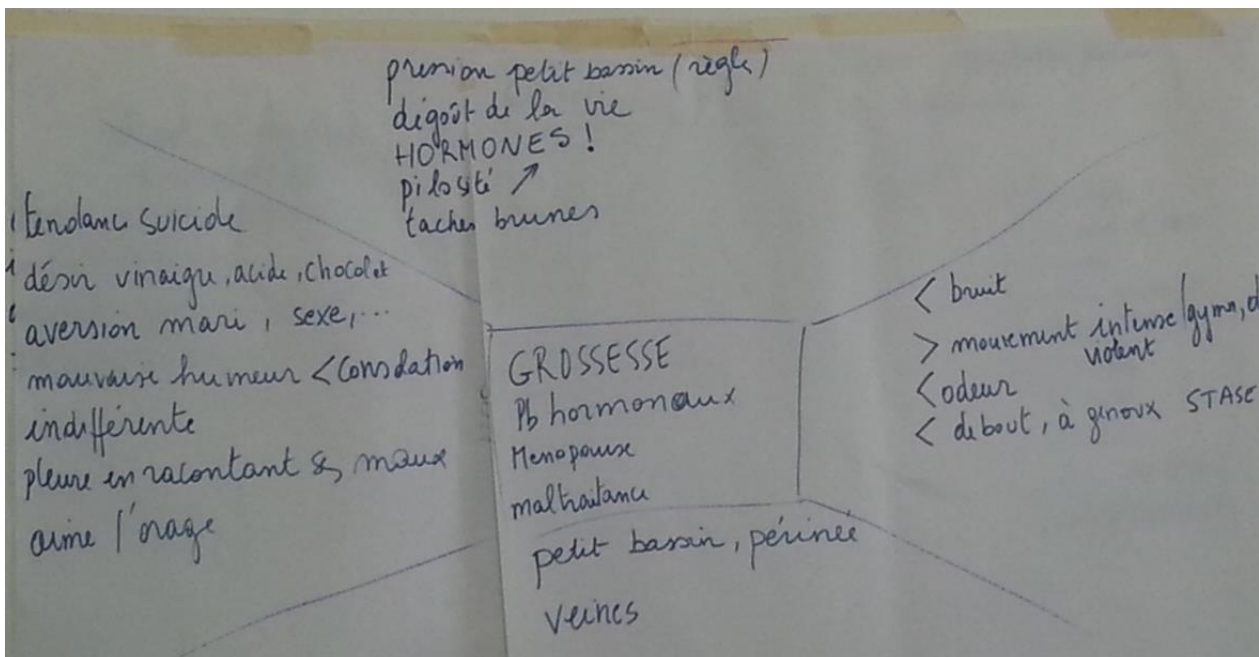 pression petit bassin (règle)
dégoût de la vie
HORMONES !
pilosité ↗
taches brunes
tendance suicide
désir vinaigre, acide, chocolat
aversion mari, sexe, ...
mauvaise humeur < consolation
indifférente
pleure en racontant ses maux
aime l'orage
GROSSESSE
Pb hormonaux
Menopause
maltraitance
petit bassin, périnée
veines
< bruit
> mouvement intense (gymn,
violent
< odeur
< debout, à genoux STASE